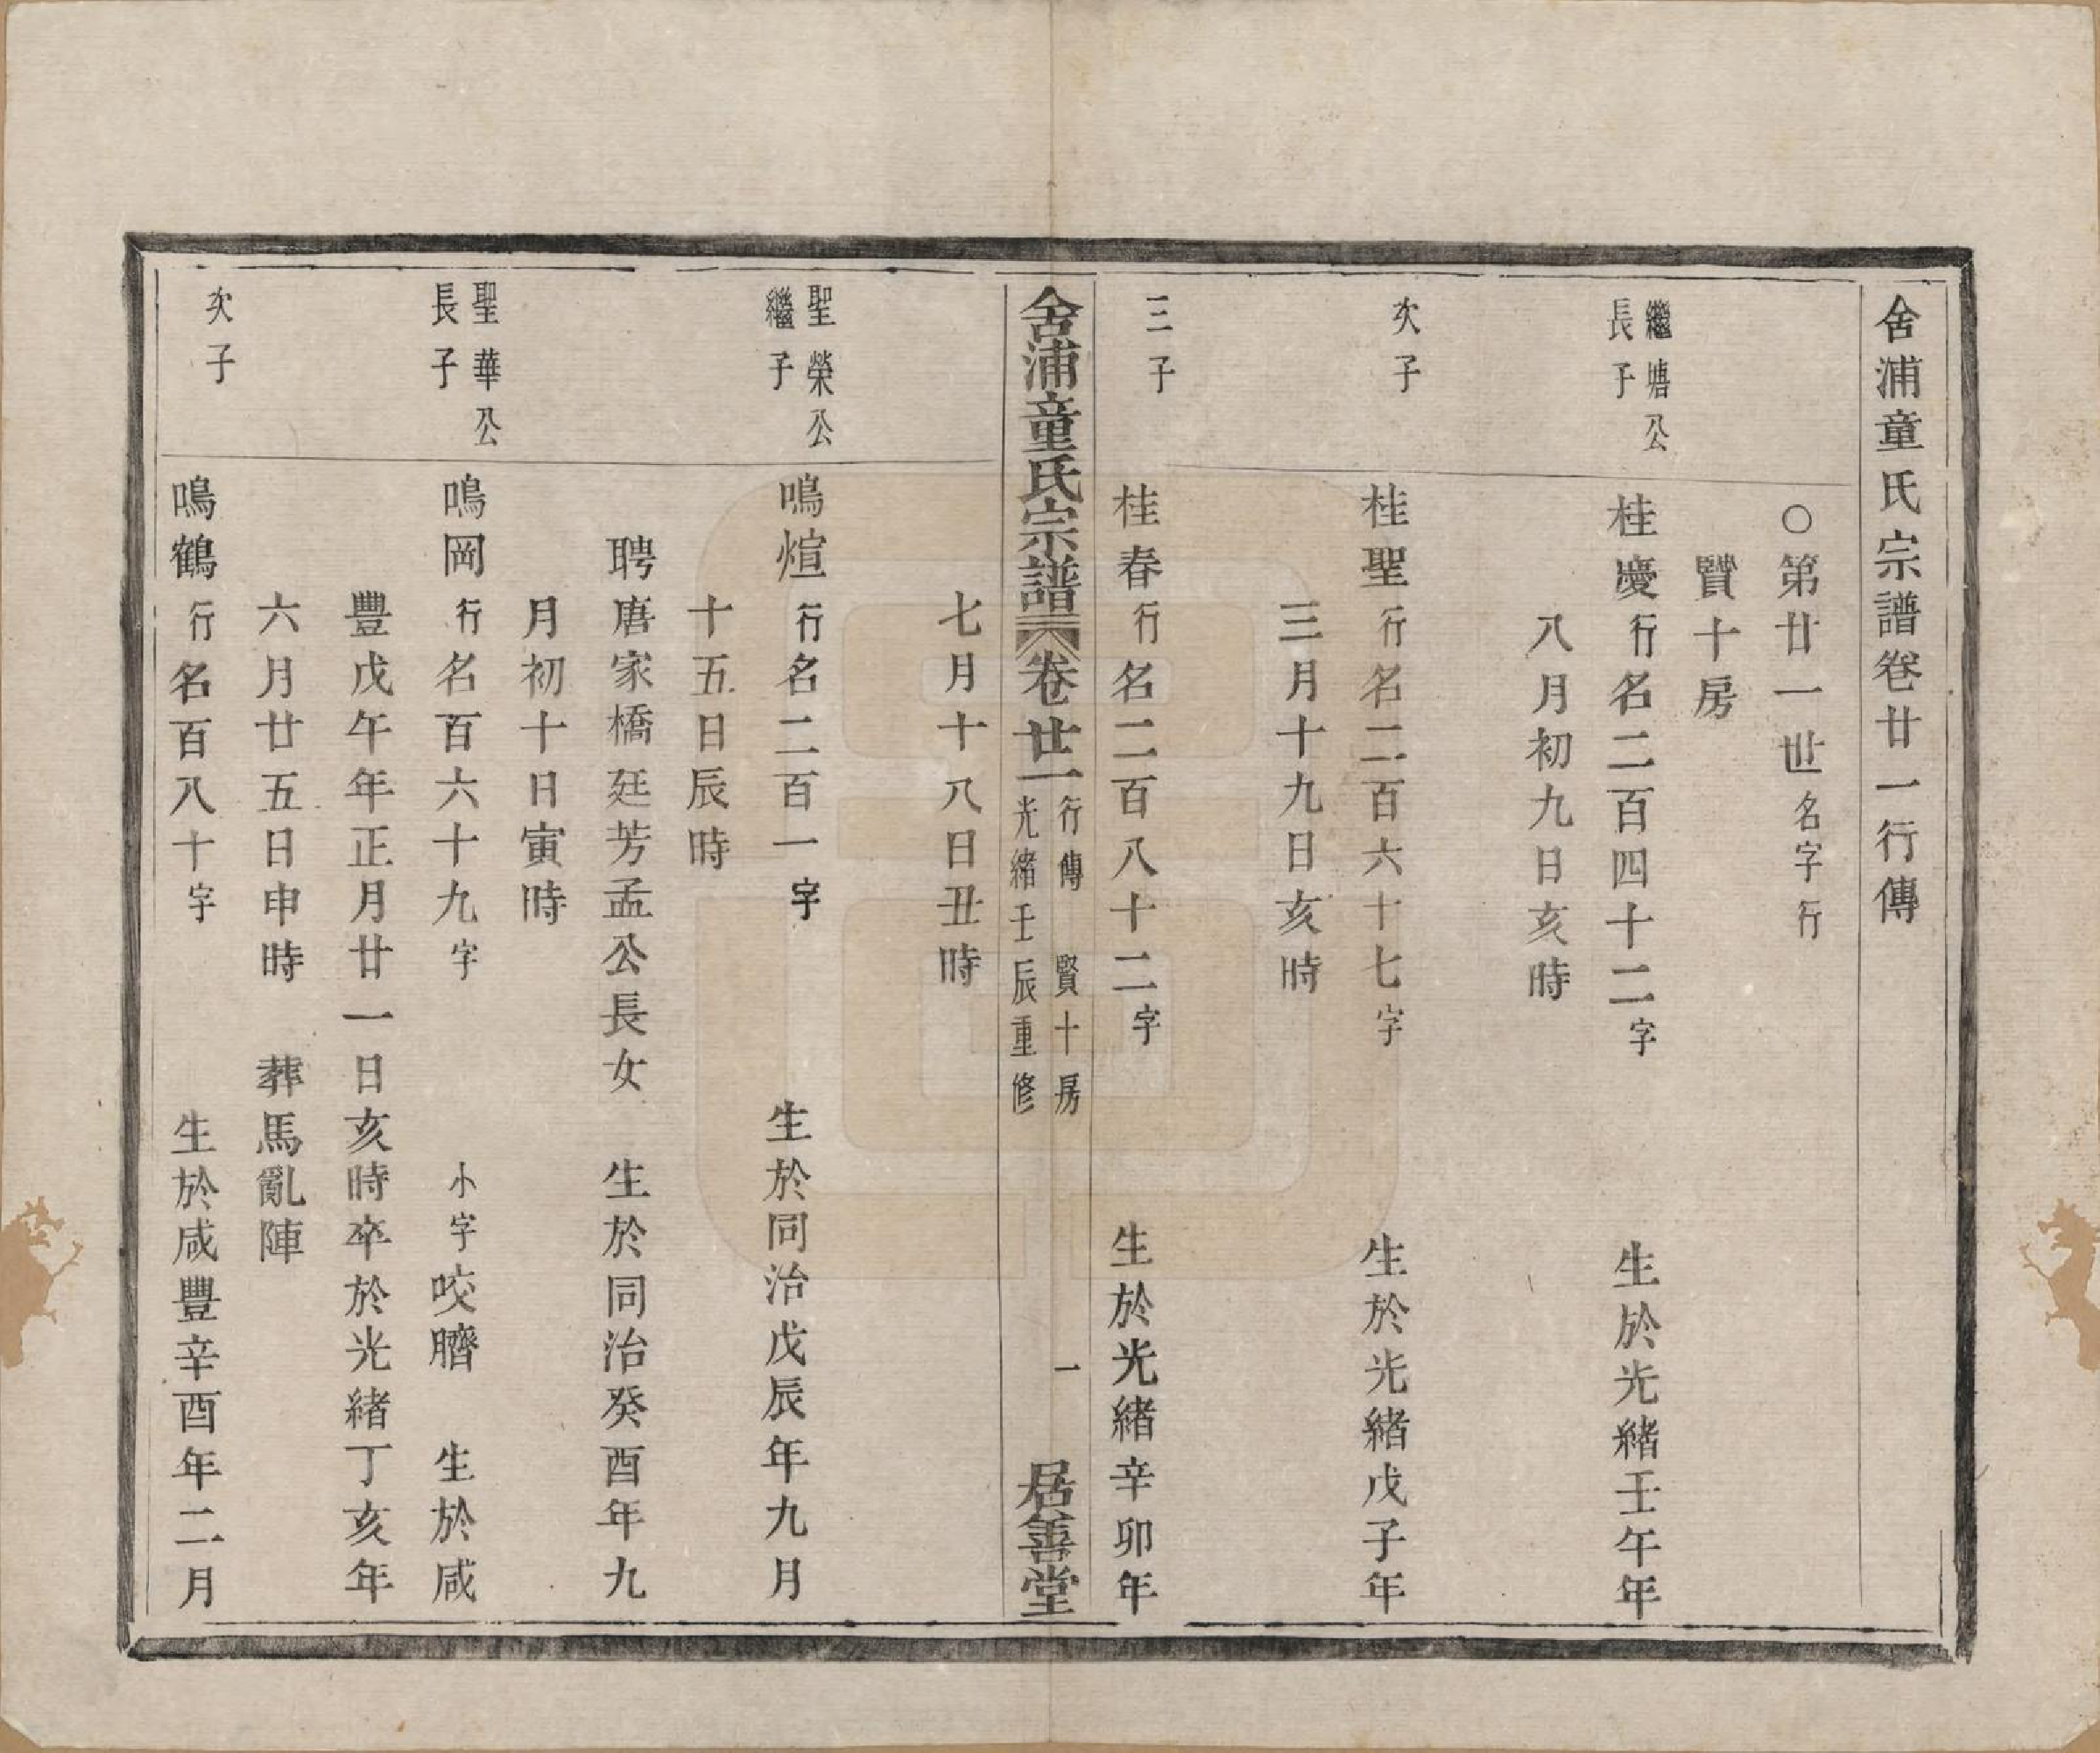 舍浦童氏宗譜卷廿一行傳
○第廿一世名字行
賢十房
繼塘公
長子
桂慶行名二百四十二字 生於光緒壬午年
八月初九日亥時
次子
桂聖行名二百六十七字 生於光緒戊子年
三月十九日亥時
三子
桂春行名二百八十二字 生於光緒辛卯年
舍浦童氏宗譜 卷廿一 行傳 賢十房 一
光緒壬辰重修
居善堂
七月十八日丑時
聖榮公
繼子
鳴煊行名二百一字 生於同治戊辰年九月
十五日辰時
聘唐家橋廷芳孟公長女 生於同治癸酉年九
月初十日寅時
聖華公
長子
鳴岡行名百六十九字 小字咬臍 生於咸
豐戊午年正月廿一日亥時卒於光緒丁亥年
六月廿五日申時 葬馬亂陣
次子
鳴鶴行名百八十字 生於咸豐辛酉年二月